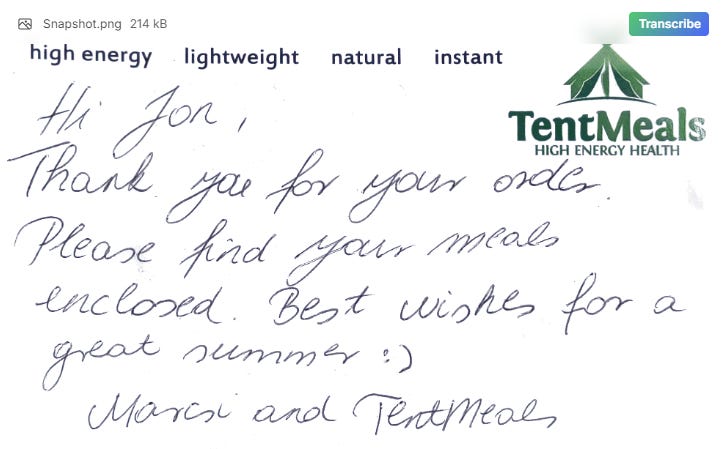 Snapshot.png 214 kB
Transcribe
high energy lightweight natural instant
TentMeals
HIGH ENERGY HEALTH
Hi Jon,
Thank you for your order.
Please find your meals
enclosed. Best wishes for a
great summer :)
and TentMeals